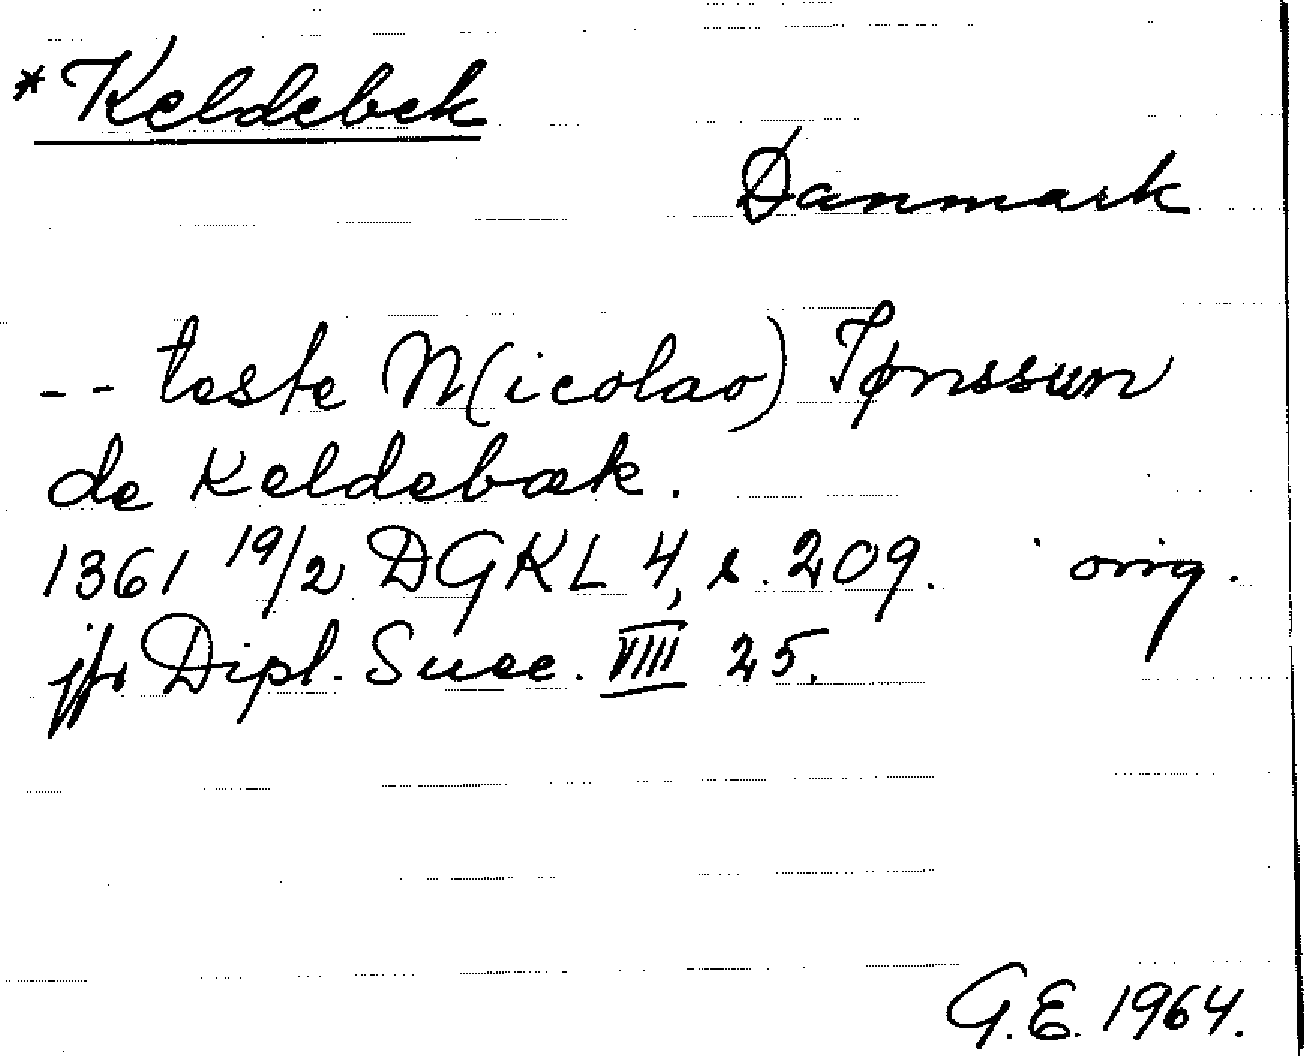 *Keldebek
Danmark
-- teste N(icolao) Jønssun
de Keldebæk.
1361 19/2 DGKL 4, s. 209. orig.
jfr Dipl. Suec. VIII 25.
G.E. 1964.